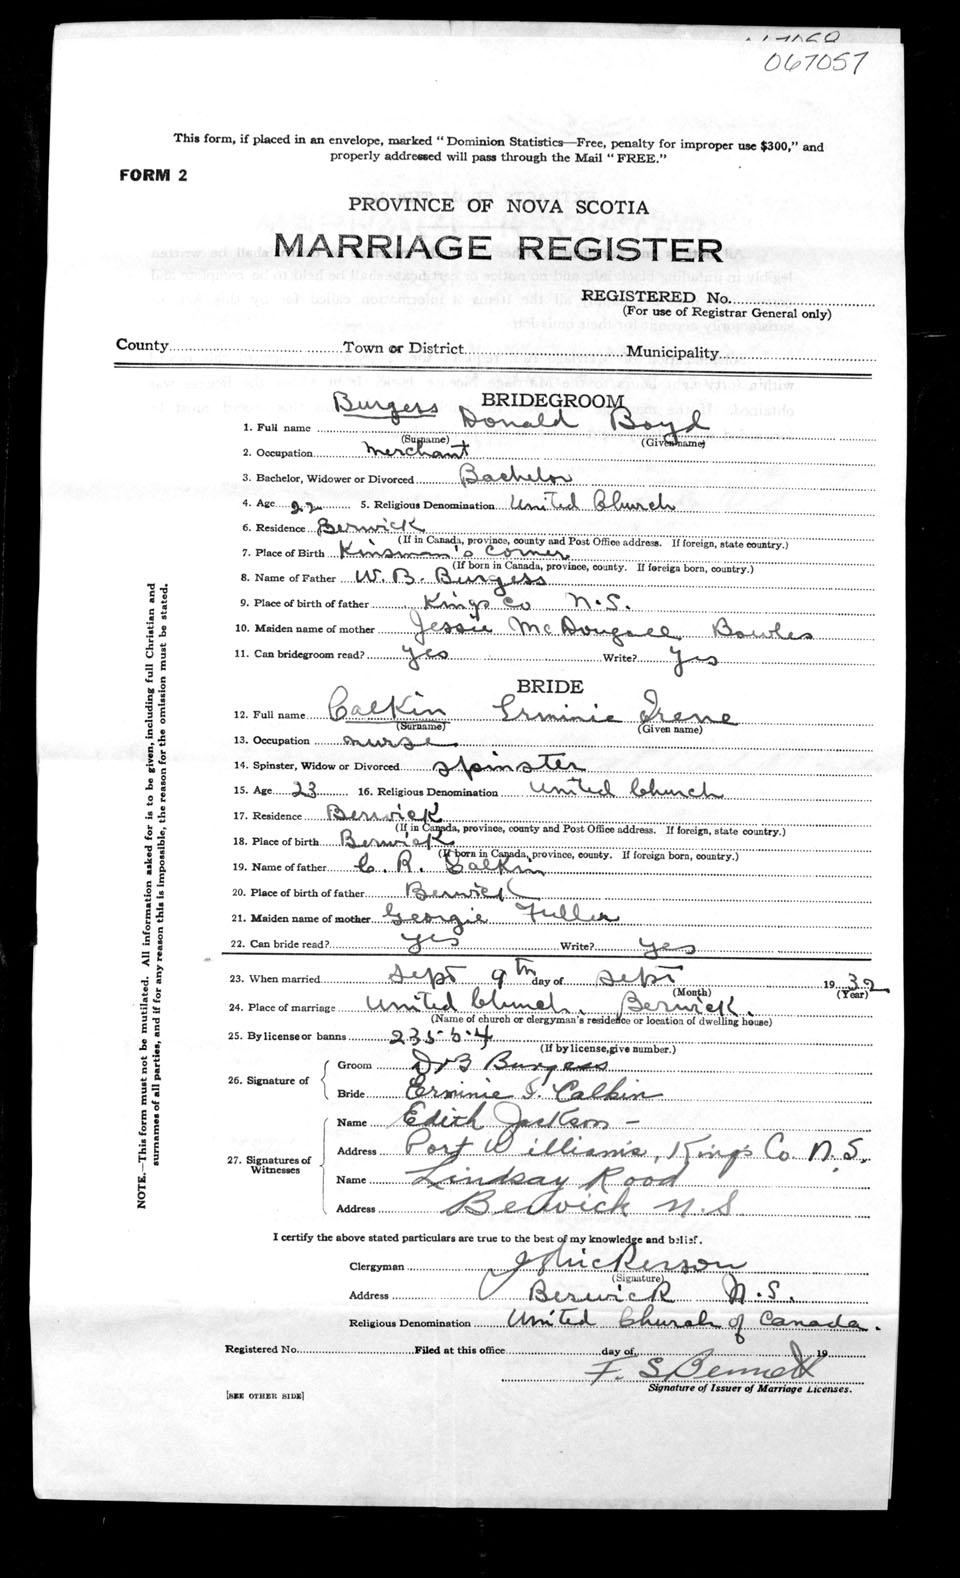 067057
This form, if placed in an envelope, marked "Dominion Statistics—Free, penalty for improper use $300," and
properly addressed will pass through the Mail "FREE."
FORM 2
PROVINCE OF NOVA SCOTIA
MARRIAGE REGISTER
REGISTERED No.
(For use of Registrar General only)
County Town or District Municipality
BRIDEGROOM
1. Full name Burgess Donald Boyd
(Surname) (Given name)
2. Occupation merchant
3. Bachelor, Widower or Divorced Bachelor
4. Age 22 5. Religious Denomination United Church
6. Residence Berwick
(If in Canada, province, county and Post Office address. If foreign, state country.)
7. Place of Birth Kinsman's Corner
(If born in Canada, province, county. If foreign born, country.)
8. Name of Father W. B. Burgess
9. Place of birth of father Kings Co N.S.
10. Maiden name of mother Jessie McDougall Bowles
11. Can bridegroom read? yes Write? yes
BRIDE
12. Full name Calkin Erminie Irene
(Surname) (Given name)
13. Occupation nurse
14. Spinster, Widow or Divorced spinster
15. Age 23 16. Religious Denomination United Church
17. Residence Berwick
(If in Canada, province, county and Post Office address. If foreign, state country.)
18. Place of birth Berwick
(If born in Canada, province, county. If foreign born, country.)
19. Name of father C. R. Calkin
20. Place of birth of father Berwick
21. Maiden name of mother Georgie Fuller
22. Can bride read? yes Write? yes
23. When married Sept 9th day of Sept 1932
(Month) (Year)
24. Place of marriage United Church, Berwick.
(Name of church or clergyman's residence or location of dwelling house)
25. By license or banns
(If by license, give number.)
26. Signature of
Groom Burgess
Bride Erminie I. Calkin
27. Signatures of Witnesses
Name Edith Jackson –
Address Port Williams, Kings Co. N.S.
Name Lindsay Rood
Address Berwick N.S
I certify the above stated particulars are true to the best of my knowledge and belief.
Clergyman
(Signature)
Address Berwick N.S.
Religious Denomination United Church of Canada.
Registered No. Filed at this office day of 19
F. S. Bennett
Signature of Issuer of Marriage Licenses.
[SEE OTHER SIDE]
NOTE.—This form must not be mutilated. All information asked for is to be given, including full Christian and
surnames of all parties, and if for any reason this is impossible, the reason for the omission must be stated.